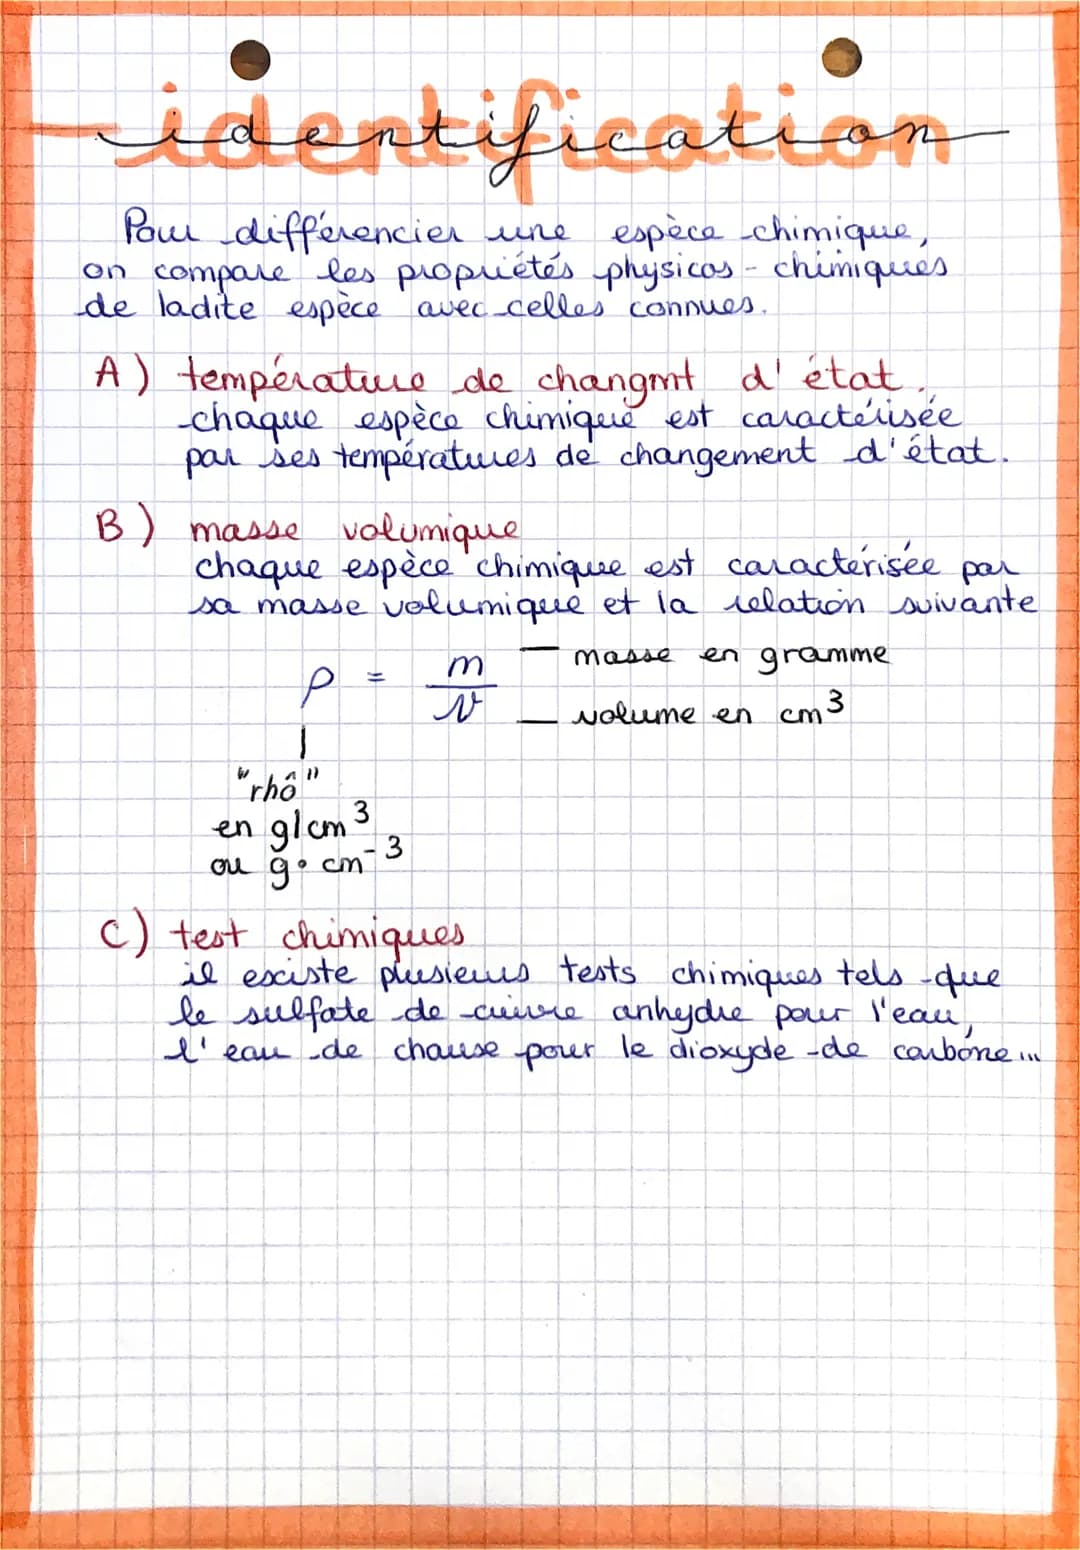 identification
Pour différencier une espèce chimique,
on compare les propriétés physicos-chimiques
de ladite espèce avec celles connues.
A) température de changmt d'état.
chaque espèce chimique est caractérisée
par ses températures de changement d'état.
B) masse volumique
chaque espèce chimique est caractérisée par
sa masse volumique et la relation suivante
ρ = m/v
— masse en gramme
— volume en cm³
"rhô"
en g/cm³
ou g·cm⁻³
C) test chimiques
il esciste plusieurs tests chimiques tels que
le sulfate de cuivre anhydre pour l'eau,
l'eau de chause pour le dioxyde de carbone...